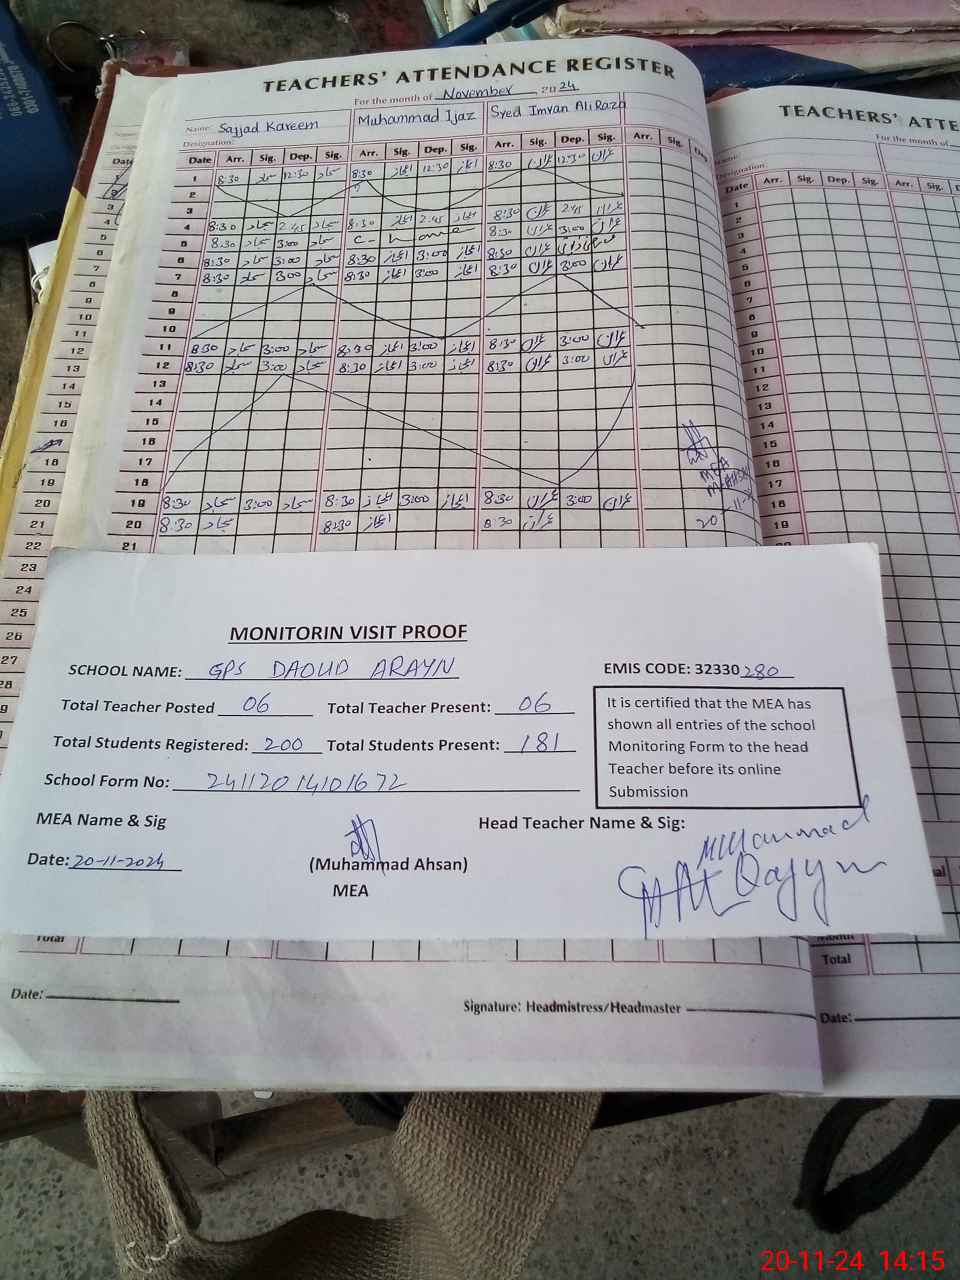 TEACHERS' ATTENDANCE REGISTER
For the month of November 2024
Name: Sajjad Kareem Muhammad Ijaz Syed Imran Ali Raza
Designation:
Date Arr. Sig. Dep. Sig. Arr. Sig. Dep. Sig. Arr. Sig. Dep. Sig. Arr. Sig. Dep
1 8:30 سجاد 12:30 سجاد 8:30 اعجاز 12:30 اعجاز 8:30 عمران 12:30 عمران
2
3
4 8:30 سجاد 2:45 سجاد 8:30 اعجاز 2:45 اعجاز 8:30 عمران 2:45 عمران
5 8:30 سجاد 3:00 سجاد C-leave 8:30 عمران 3:00 عمران
6 8:30 سجاد 3:00 سجاد 8:30 اعجاز 3:00 اعجاز 8:30 عمران
7 8:30 سجاد 3:00 سجاد 8:30 اعجاز 3:00 اعجاز 8:30 عمران 3:00 عمران
8
9
10
11 8:30 سجاد 3:00 سجاد 8:30 اعجاز 3:00 اعجاز 8:30 عمران 3:00 عمران
12 8:30 سجاد 3:00 سجاد 8:30 اعجاز 3:00 اعجاز 8:30 عمران 3:00 عمران
13
14
15
16
17
18
19 8:30 سجاد 3:00 سجاد 8:30 اعجاز 3:00 اعجاز 8:30 عمران 3:00 عمران
20 8:30 سجاد 8:30 اعجاز 8:30 عمران
21
MEA
20-11-
TEACHERS' ATTE
For the month of
Name:
Designation:
Date Arr. Sig. Dep. Sig. Arr. Sig.
1
2
3
4
5
6
7
8
9
10
11
12
13
14
15
16
17
18
19
MONITORIN VISIT PROOF
SCHOOL NAME: GPS DAOUD ARAYN EMIS CODE: 32330280
Total Teacher Posted 06 Total Teacher Present: 06
Total Students Registered: 200 Total Students Present: 181
School Form No: 24112014101672
It is certified that the MEA has
shown all entries of the school
Monitoring Form to the head
Teacher before its online
Submission
MEA Name & Sig Head Teacher Name & Sig:
Muhammad
Date: 20-11-2024 (Muhammad Ahsan)
MEA
Total
Date: Signature: Headmistress/Headmaster
Total
Date:
20-11-24 14:15